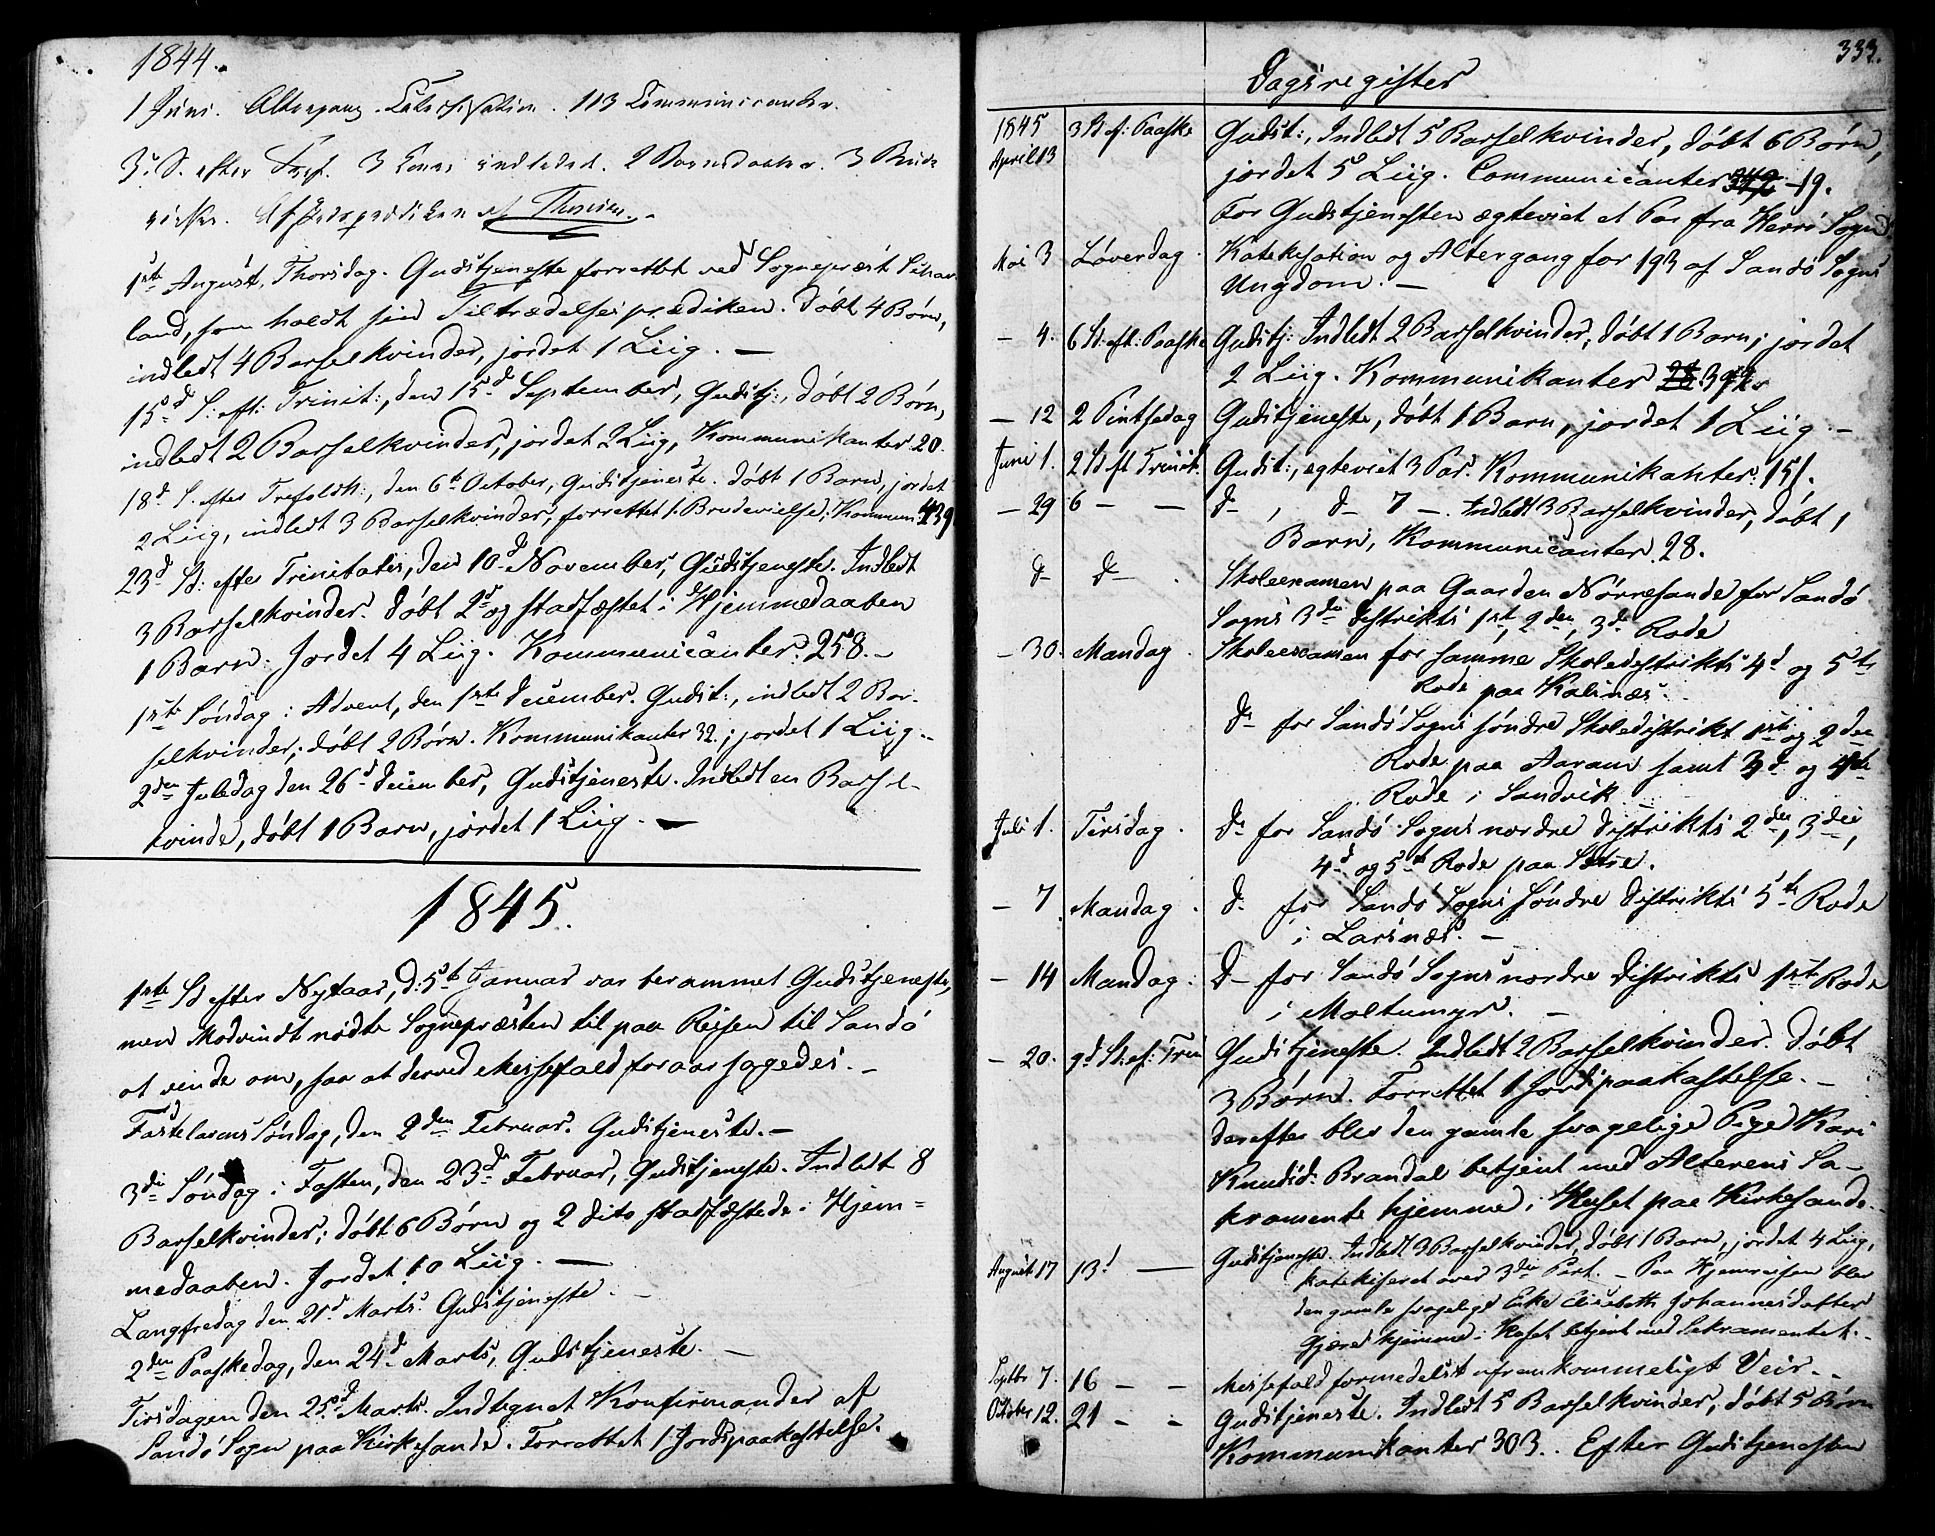 1844.
1 Juni. Altergang. Catechisation. 113 Communicanter.
3. S. efter Tref. 3 Koner indledet. 2 Barnedaaber. 3 Brude
vielser. Afskedsprædiken af Thesen.
1ste August, Thorsdag. Gudstjeneste forrettet ved Sognepræst
land, som holdt sin Tiltrædelsesprædiken. Døbt 4 Børn,
indledt 4 Barselkvinder, jordet 1 Liig. —
15d S: eft: Trinit:, den 15d September, Gudstj:, døbt 2 Børn,
indledt 2 Barselkvinder, jordet 2 Liig, Kommunikanter 20.
18d S. efter Trefoldh:, den 6te October, Gudstjeneste. Døbt 1 Barn, jordet
2 Liig, indledt 3 Barselkvinder, forrettet 1 Brudevielse; Kommun. 439
23d Sd: efter Trinitatis, den 10d November, Gudstjeneste. Indledt
3 Barselkvinder. Døbt 2 og stadfæstet i Hjemmedaaben
1 Barn. Jordet 4 Liig. Kommunicanter: 258. —
1ste Søndag i Advent, den 1ste December. Gudst:, indledt 2 Bar-
selkvinder; døbt 2 Børn. Kommunikanter 32.; jordet 1 Liig. —
2den Juledag den 26d December, Gudstjeneste. Indledt en Barsel-
kvinde, døbt 1 Barn, jordet 1 Liig. —
1845.
1ste Sd efter Nytaar, d: 5te Januar var berammet Gudstjeneste,
men Modvindt nødte Sognepræsten til paa Reisen til Sandø
at vende om, saa at derved Messefald foraarsagedes. —
Fastelavens Søndag, den 2den Februar. Gudstjeneste. —
3die Søndag i Fasten, den 23d Februar, Gudstjeneste. Indledt 8
Barselkvinder; døbt 6 Børn og 2 dito stadfæstede i Hjem=
medaaben. Jordet 10 Liig. —
Langfredag den 21d Marts. Gudstjeneste. —
2den Paaskedag, den 24d Marts, Gudstjeneste. —
Tirsdagen den 25d Marts. Indtegnet Konfirmander af
Sandø Sogn paa Kirkesande. Forrettet 1 Jordspaakastelse.
333.
Dagsregister
1845 April 13 3 S. ef: Paaske Gudst:, Indledt 5 Barselkvinder, døbt 6 Børn,
jordet 5 Liig. Communicanter 349 - 19.
For Gudstjenesten ægteviet et Par fra Herrø Sogn
Mai 3 Løverdag. Katekisation og Altergang for 193 af Sandø Sogns
Ungdom. —
— 4. 6 S: eft: Paaske Gudstj: Indledt 2 Barselkvinder, døbt 1 Barn; jordet
2 Liig. Kommunikanter
— 12 2 Pintsedag Gudstjeneste, døbt 1 Barn, jordet 1 Liig. —
Juni 1. 2 S. eft Trinit. Gudst:, ægteviet 3 Par. Kommunikanter: 151.
— 29 6 — — d— , d— 7 —. Indledt 3 Barselkvinder, døbt 1
Barn, Kommunicanter 28.
d— d— . Skoleexamen paa Gaarden Nørresande for Sandø
Sogns 3die Distrikts 1ste, 2den, 3die Rode
— 30. Mandag. Skoleexamen for samme Skoledistrikts 4d og 5te
Rode paa Kalnæs. —
d— for Sandø Sogns søndre Skoledistrikt 1ste og 2den
Rode paa Aaram samt 3d og 4de
Rode i Sandvik —
Juli 1. Tirsdag. d— for Sandø Sogns nordre Distrikts 2den, 3die,
4d og 5te Rode paa Sætre.
— 7 Mandag. d— for Sandø Sogns søndre Distrikts 5te Rode
i Larsnæs. —
— 14 Mandag. d— for Sandø Sogns nordre Distrikts 1ste Rode
i Moltumyr. —
— 20. 9d S. ef: Tri: Gudstjeneste. Indledt 2 Barselkvinder. Døbt
3 Børn. Forrettet 1 Jordspaakastelse. —
Derefter blev den gamle svagelige Pige Kari
Knudsd: Brandal betjent med Alterens Sa-
kramente hjemme i Huset paa Kirkesande.
August 17 13! — Gudstjeneste. Indledt 3 Barselkvinder, døbt 1 Barn, jordet 4 Liig,
katekiseret over 3die Part. — Paa Hjemreisen blev
den gamle svagelige Enke Elisabeth Johannesdatter
Gjære hjemme i Huset betjent med Sakramentet. —
Septbr 7. 16 — — Messefald formedelst ufremkommeligt Veir. —
October 12. 21 — — Gudstjeneste. Indledt 5 Barselkvinder, døbt 5 Børn
Kommunikanter 303. Efter Gudstjenesten